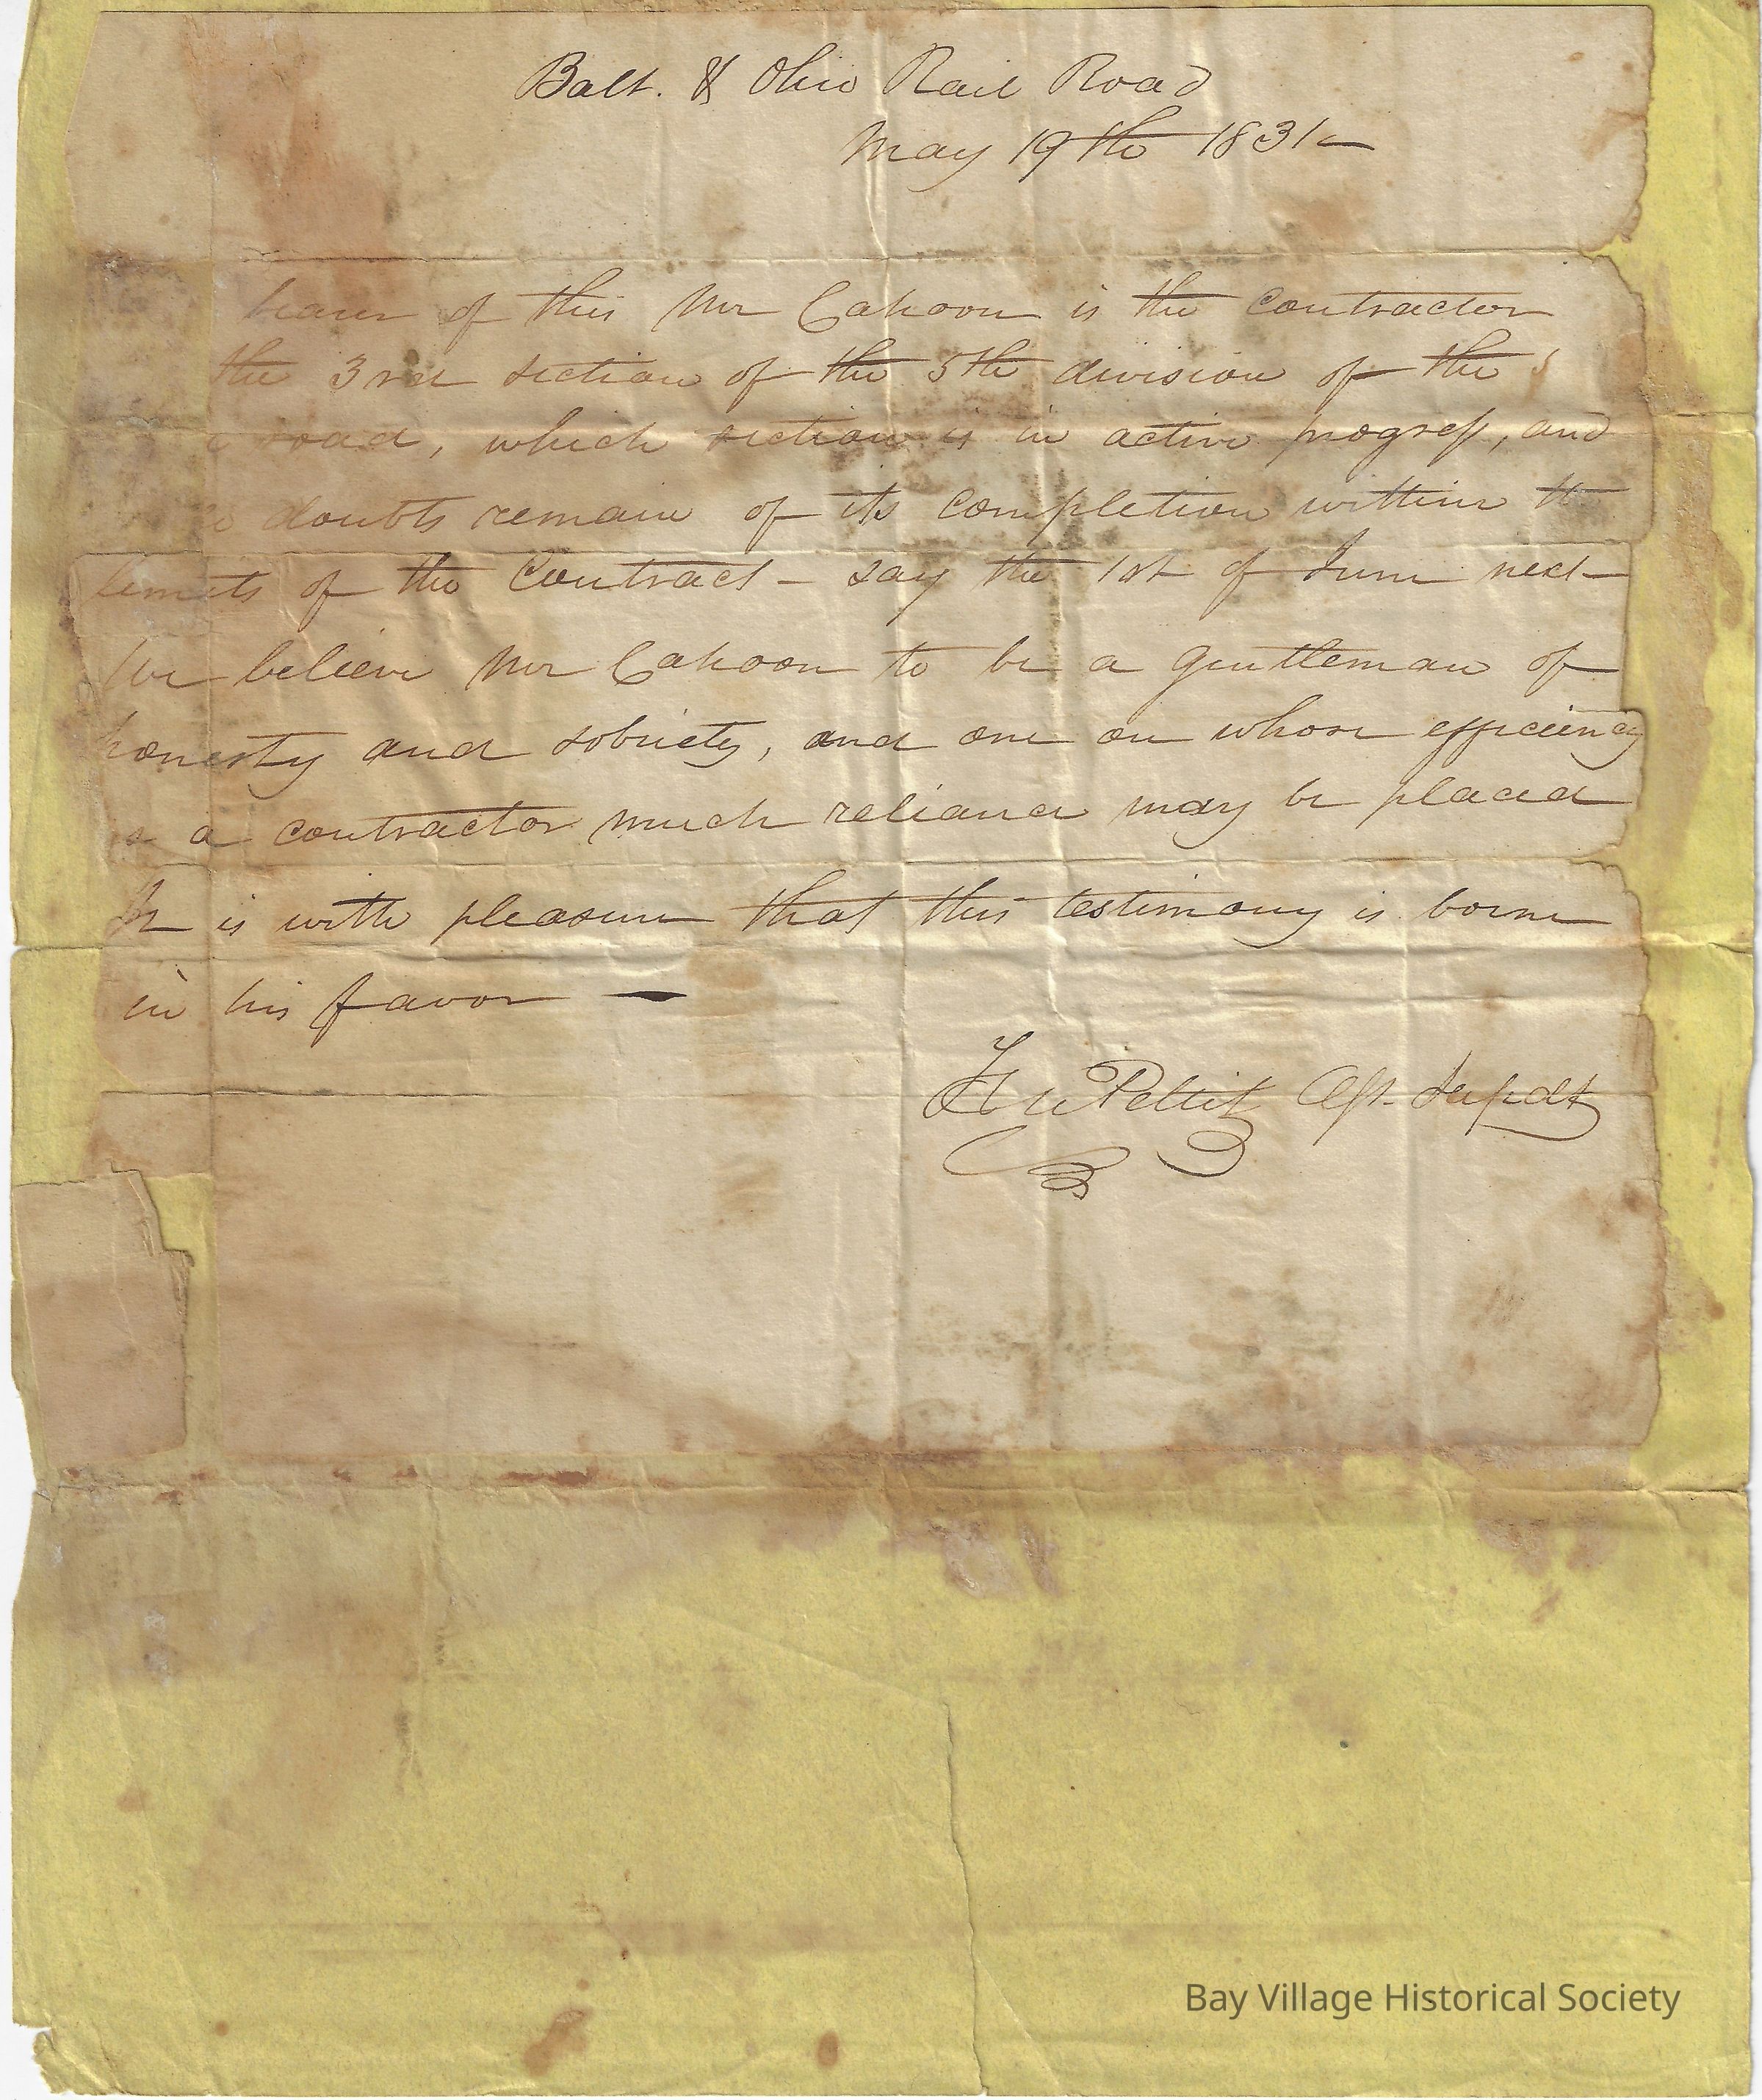 Balt. & Ohio Rail Road
May 19th 1831
bearer of this Mr Cahoon is the contractor
the 3rd section of the 5th division of the
road, which section is in active progress, and
doubts remain of its completion within the
limits of the Contract - say the 1st of June next
We believe Mr Cahoon to be a gentleman of
honesty and sobriety, and one on whose efficiency
as a contractor much reliance may be placed
It is with pleasure that this testimony is borne
in his favor —
Pettit Asst. Supdt
Bay Village Historical Society